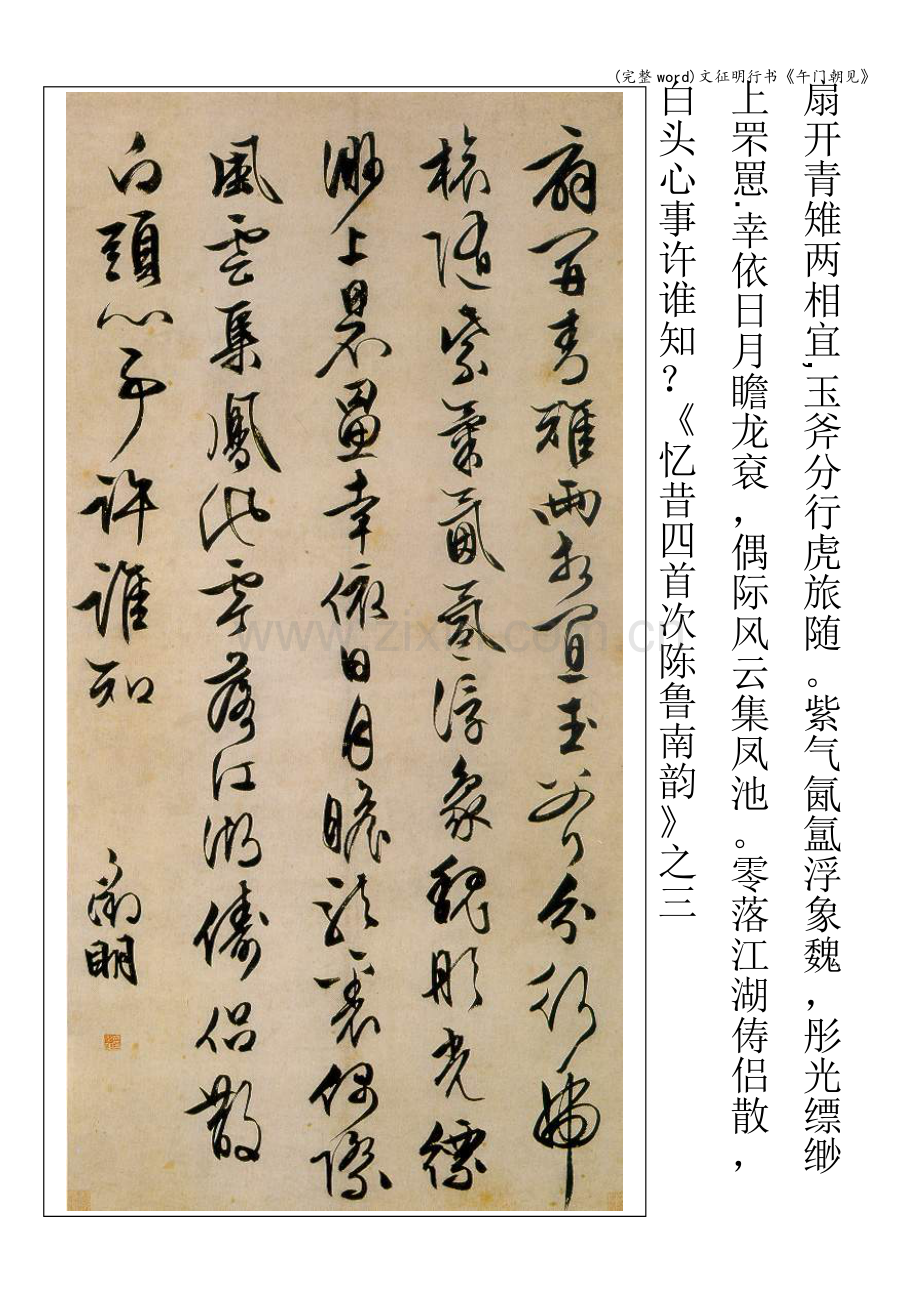 (完整word)文征明行书《午门朝见》
扇开青雉两相宜,玉斧分行虎旅随。紫气氤氲浮象魏，彤光缥缈
上罘罳.幸依日月瞻龙衮，偶际风云集凤池。零落江湖俦侣散，
白头心事许谁知？《忆昔四首次陈鲁南韵》之三
扇開青雉兩相宜玉斧分行虎
旅隨紫氣氤氳浮象魏彤光縹
緲上罘罳幸依日月瞻龍袞偶際
風雲集鳳池零落江湖儔侶散
白頭心事許誰知
徵明
www.zixin.com.cn